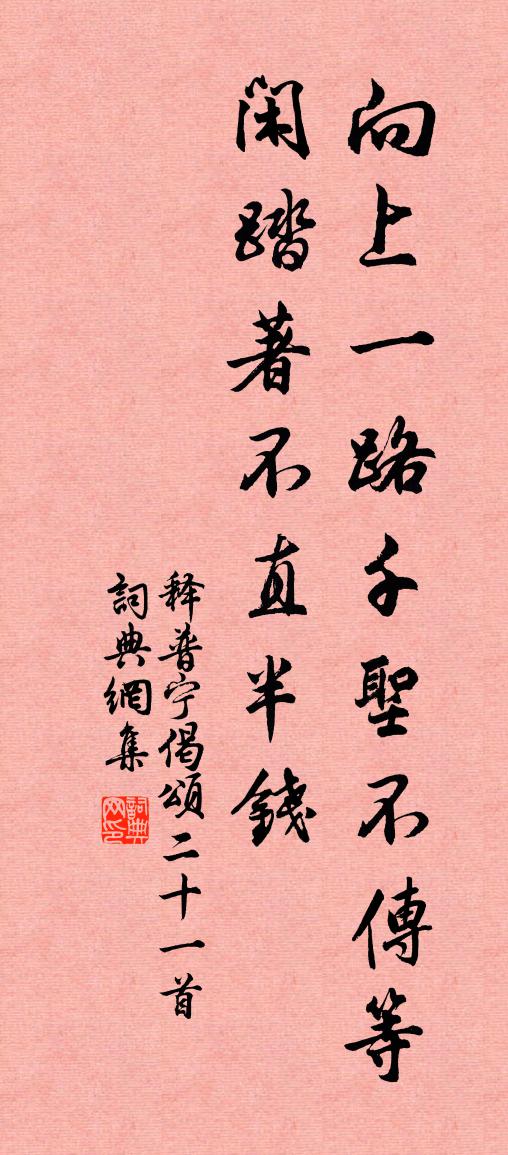 向上一路千聖不傳等
閑踏著不直半錢
释普宁偈頌二十一首
詞典網集
詞典网印